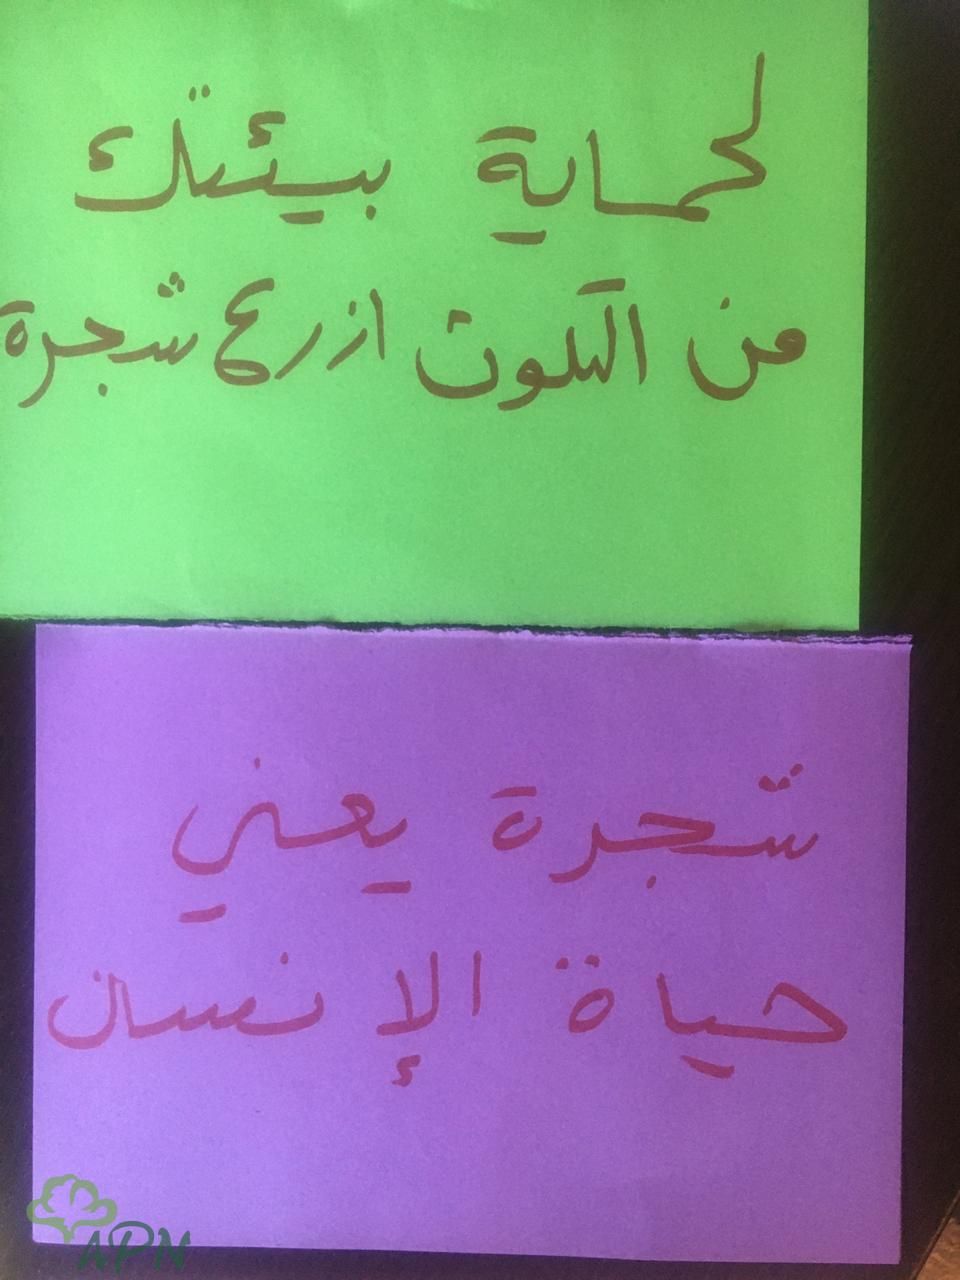 لحماية بيئتك
من التلوث ازرع شجرة
شجرة يعني
حياة الإنسان
APN